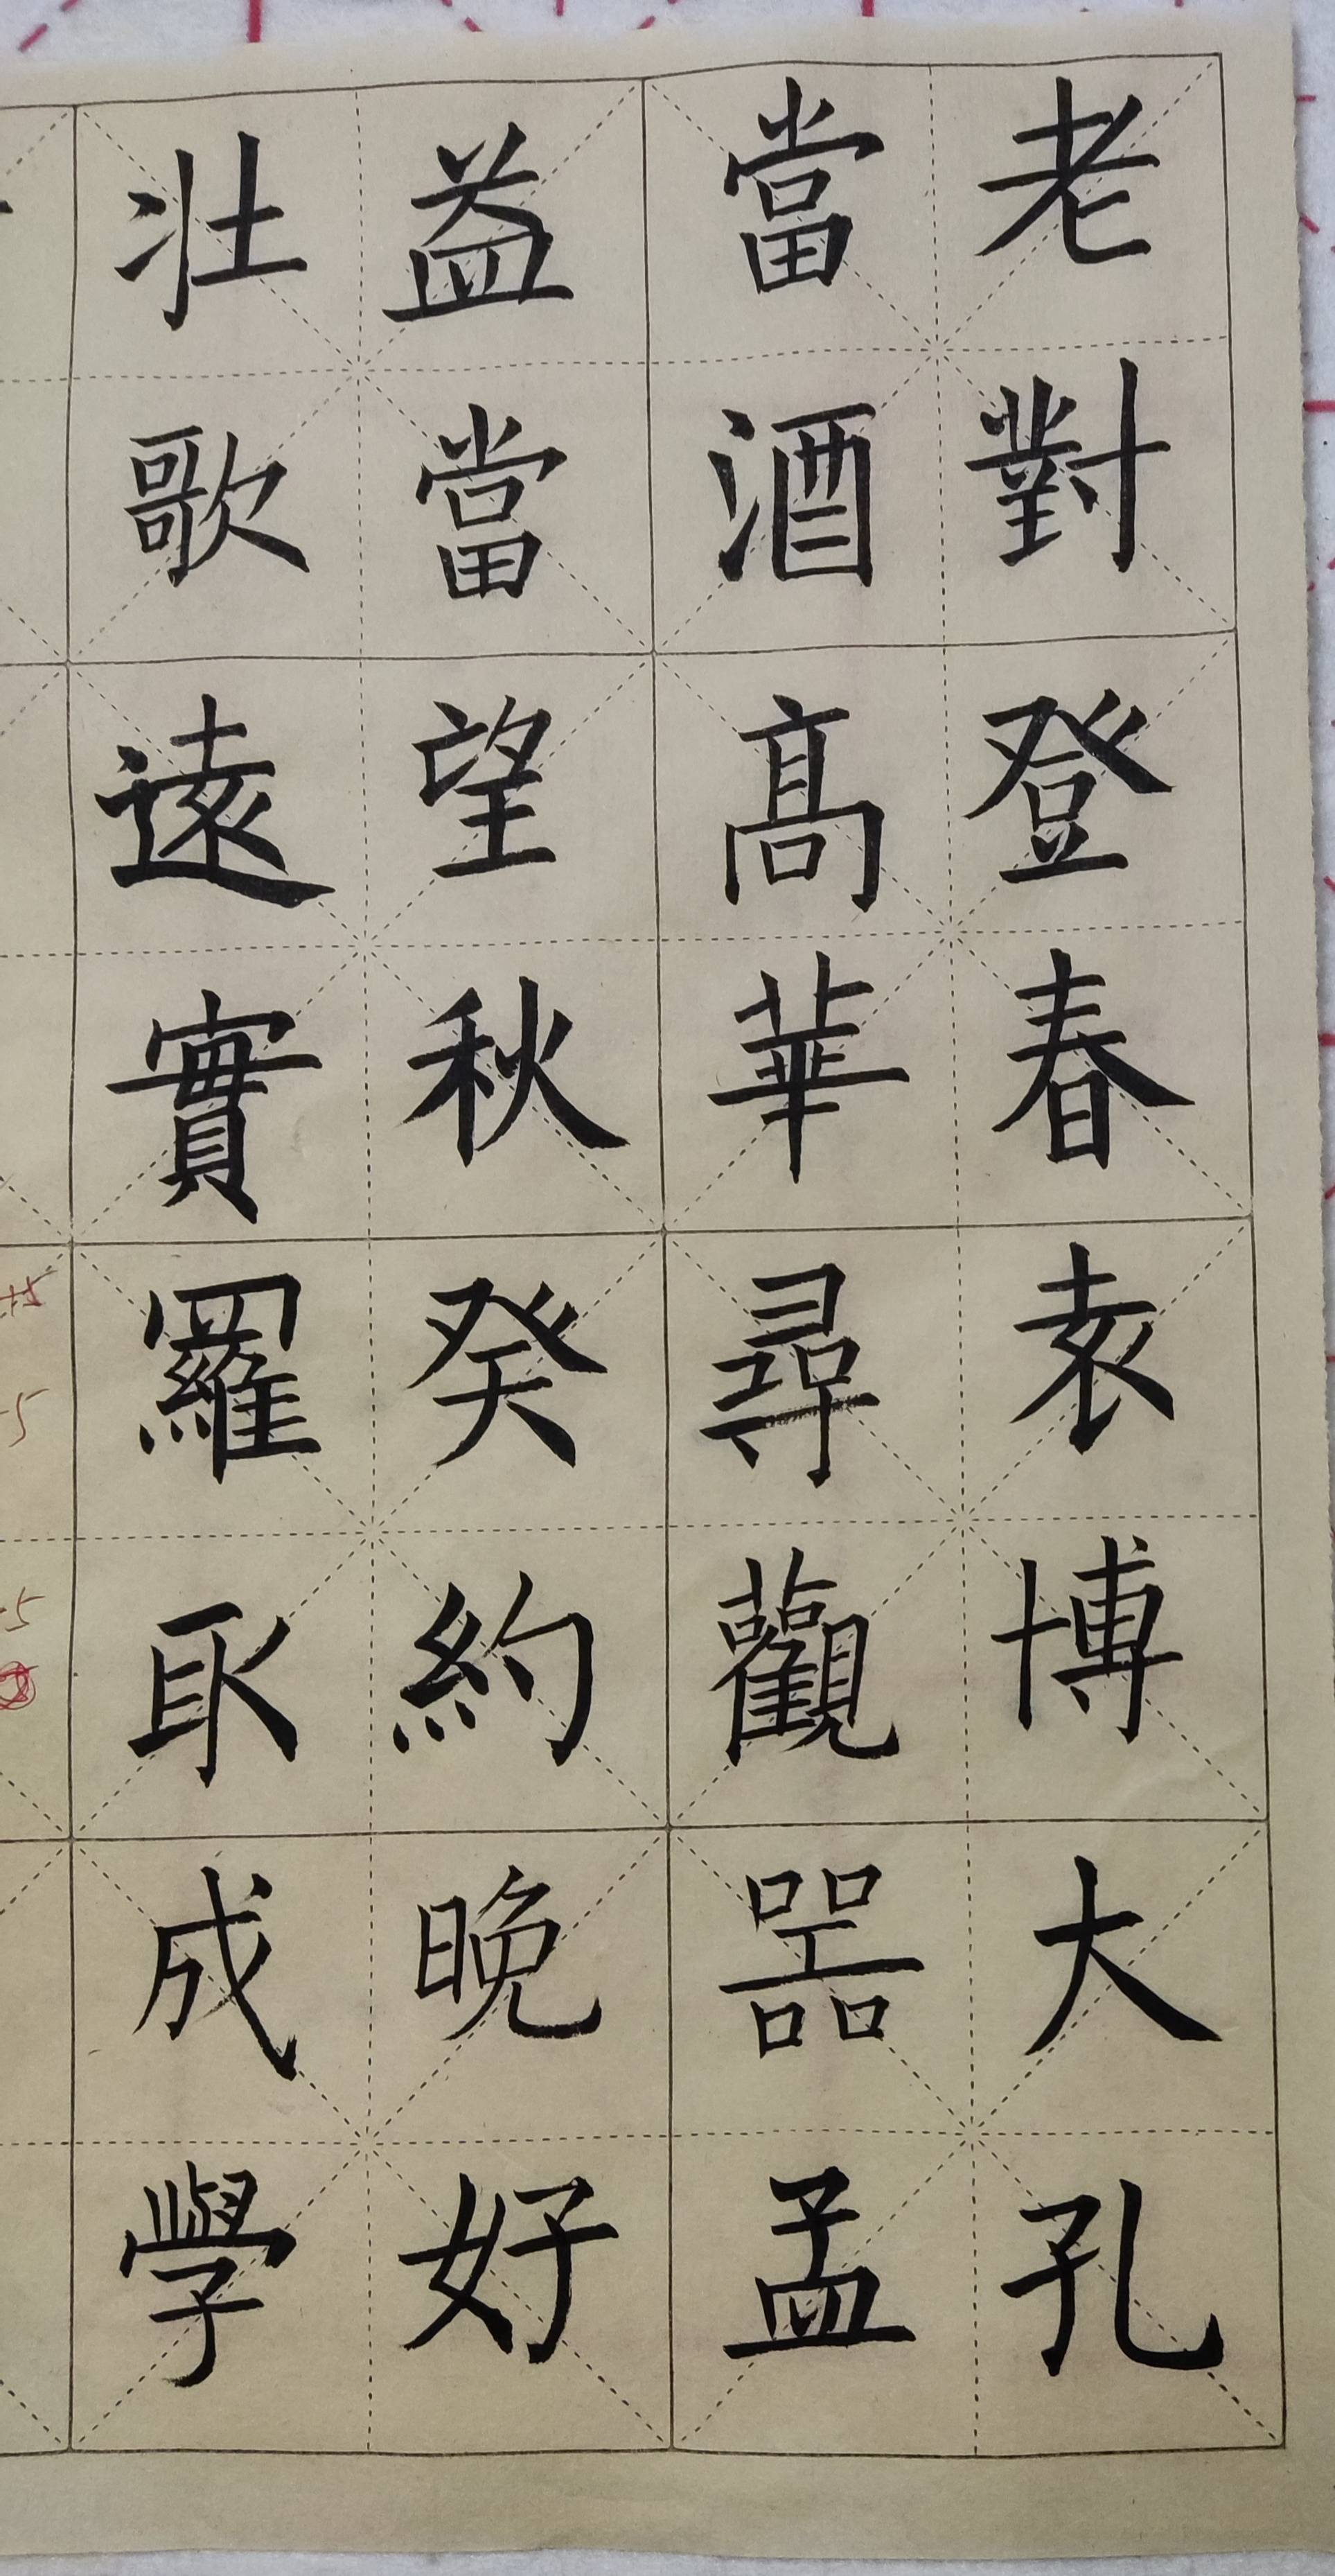 老當益壯
對酒當歌
登髙望遠
春華秋實
袁尋癸羅
博觀約取
大噐晚成
孔孟好學